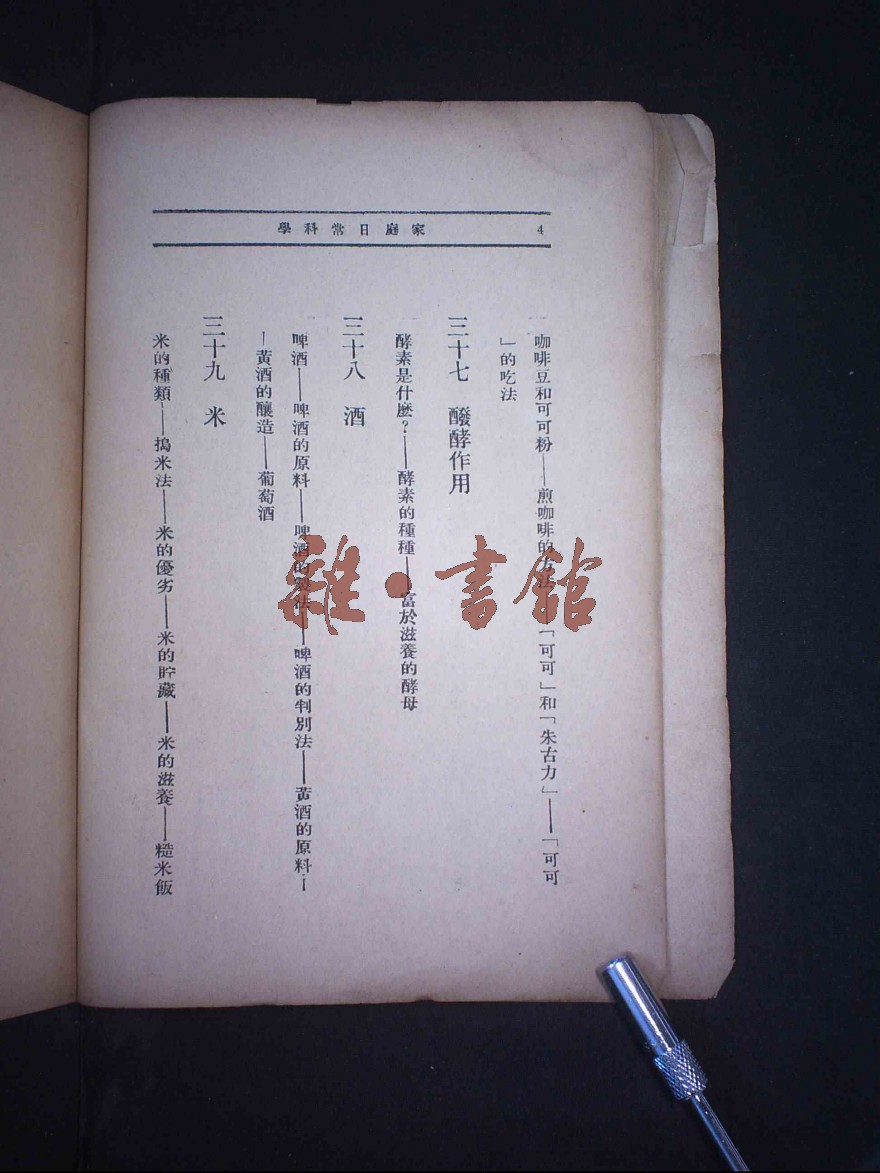 家庭日常科學 4
咖啡豆和可可粉——煎咖啡的方法——「可可」和「朱古力」——「可可
」的吃法
三十七 醱酵作用
酵素是什麼?——酵素的種種——富於滋養的酵母
三十八 酒
啤酒——啤酒的原料——啤酒的製法——啤酒的判別法——黃酒的原料—
—黃酒的釀造——葡萄酒
三十九 米
米的種類——搗米法——米的優劣——米的貯藏——米的滋養——糙米飯
雜·書館